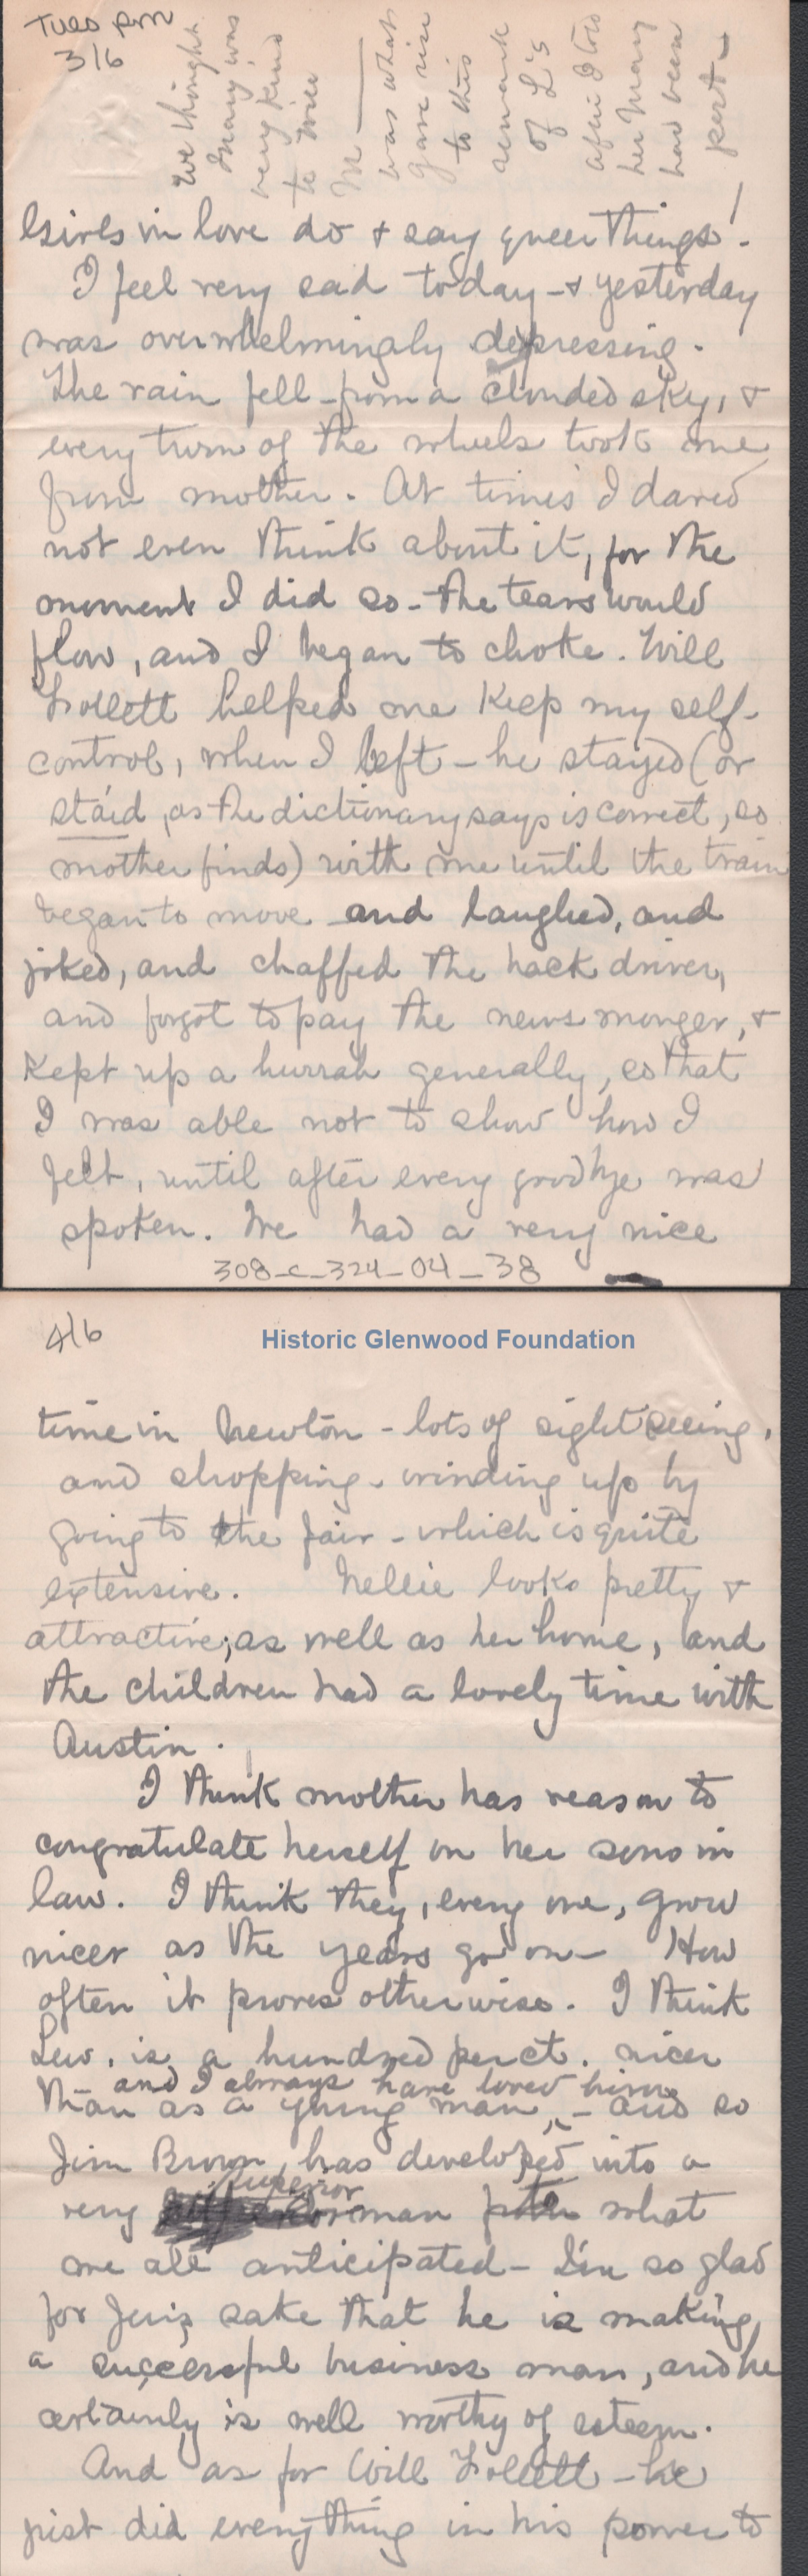 Tues pm
3/6
We thought
Mary was
very kind
to Will
M —
was what
gave rise
to this
remark
of L's
after I told
her Mary
had been
pert —
Girls in love do & say queer things!
I feel very sad today - & yesterday
was overwhelmingly depressing.
The rain fell from a clouded sky, &
every turn of the wheels took me
from mother. At times I dared
not even think about it, for the
moment I did so - the tears would
flow, and I began to choke. Will
Follett helped me keep my self-
control, when I left - he stayed (or
staid, as the dictionary says is correct, so
mother finds) with me until the train
began to move and laughed, and
joked, and chaffed the hack driver,
and forgot to pay the news monger, &
kept up a hurrah generally, so that
I was able not to show how I
felt, until after every goodbye was
spoken. We had a very nice
308-c-324-04-38
4/6
Historic Glenwood Foundation
time in Newton - lots of sight seeing,
and shopping - winding up by
going to the fair - which is quite
extensive. Nellie looks pretty &
attractive; as well as her home, and
the children had a lovely time with
Austin.
I think mother has reason to
congratulate herself on her sons in
law. I think they, every one, grow
nicer as the years go on - How
often it proves otherwise. I think
Lew. is a hundred per ct. nicer
and I always have loved him
than as a young man, - and so
Jim Brown, has developed into a
superior
very man what
we all anticipated - I'm so glad
for sake that he is making
a successful business man, and he
certainly is well worthy of esteem.
And as for Will Follett - he
just did everything in his power to